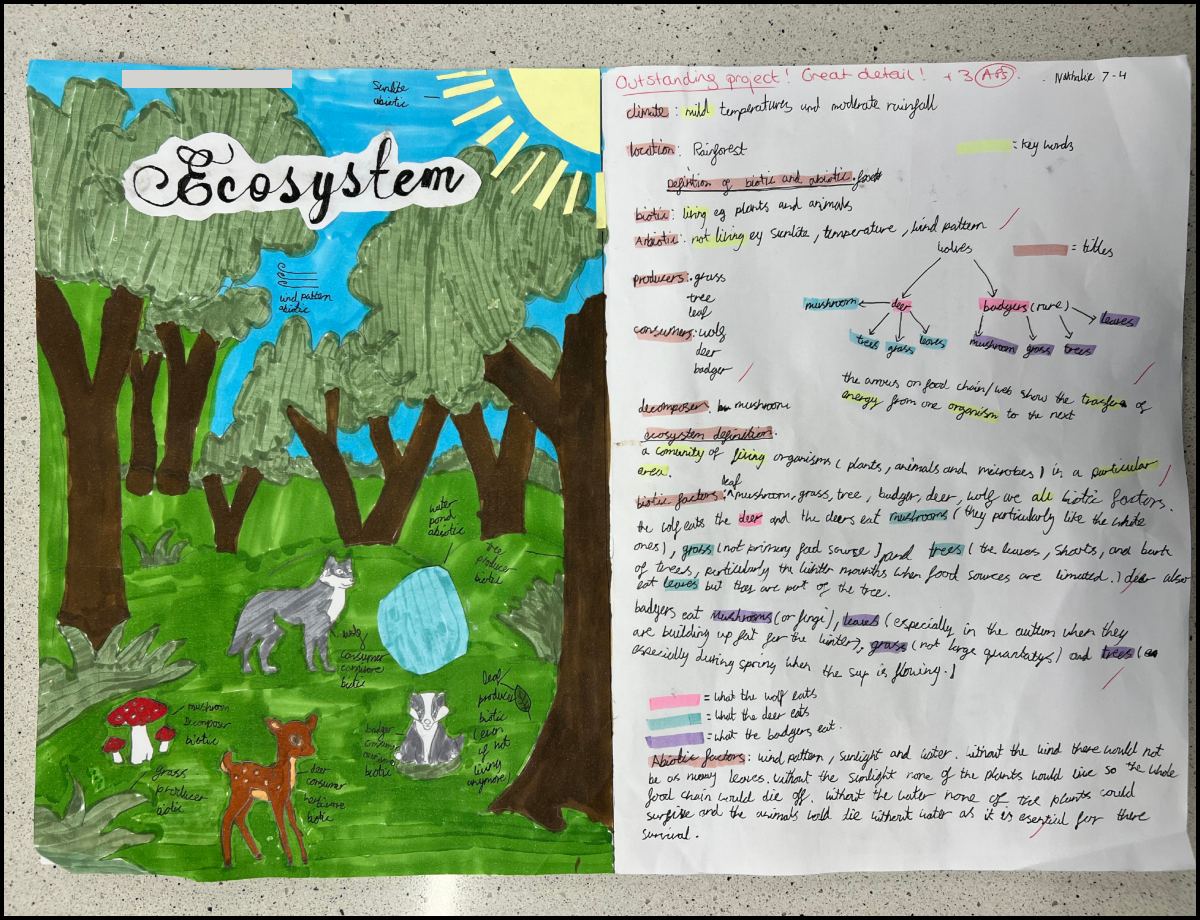 Sunlite
abiotic
Ecosystem
wind pattern
abiotic
water
pond
abiotic
tree
producer
biotic
wolf
consumer
carnivore
biotic
leaf
producer
biotic
(even
if not
living
anymore)
mushroom
Decomposer
biotic
badger
consumer
biotic
grass
producer
biotic
deer
consumer
herbivore
biotic
Outstanding project! Great detail! +3
Nathalie 7-4
climate: mild temperatures and moderate rainfall
location: Rainforest
= key words
Definition of biotic and abiotic
biotic: living eg plants and animals
Abiotic: not living eg sunlite, temperature, wind pattern
wolves
= titles
producers: grass
tree
leaf
mushroom
deer
badgers (rare)
leaves
trees
grass
leaves
mushroom
grass
trees
consumers: wolf
deer
badger
the arrows on food chain/web show the transfer of
energy from one organism to the next
decomposer. mushroom
ecosystem definition.
a comunity of living organisms (plants, animals and microbes) in a particular
area.
leaf
biotic factors: ^mushroom, grass, tree, badger, deer, wolf are all biotic factors.
the wolf eats the deer and the deers eat mushrooms (they particularly like the white
ones), grass (not primary food sourse) and trees (the leaves, shoots, and bark
of trees, particularly the winter mounths when food sources are limuted.) deer also
eat leaves but they are part of the tree.
badgers eat mushrooms (or fungi), leaves (especially in the autum when they
are building up fat for the winter), grass (not large quantatys) and trees (
especially during spring when the sap is flowing.)
= what the wolf eats
= what the deer eats
= what the badgers eat.
Abiotic factors: wind pattern, sunlight and water. without the wind there would not
be as many leaves. without the sunlight none of the plants would live so the whole
food chain would die off. without the water none of the plants could
surfive and the animals would die without water as it is esential for there
survival.